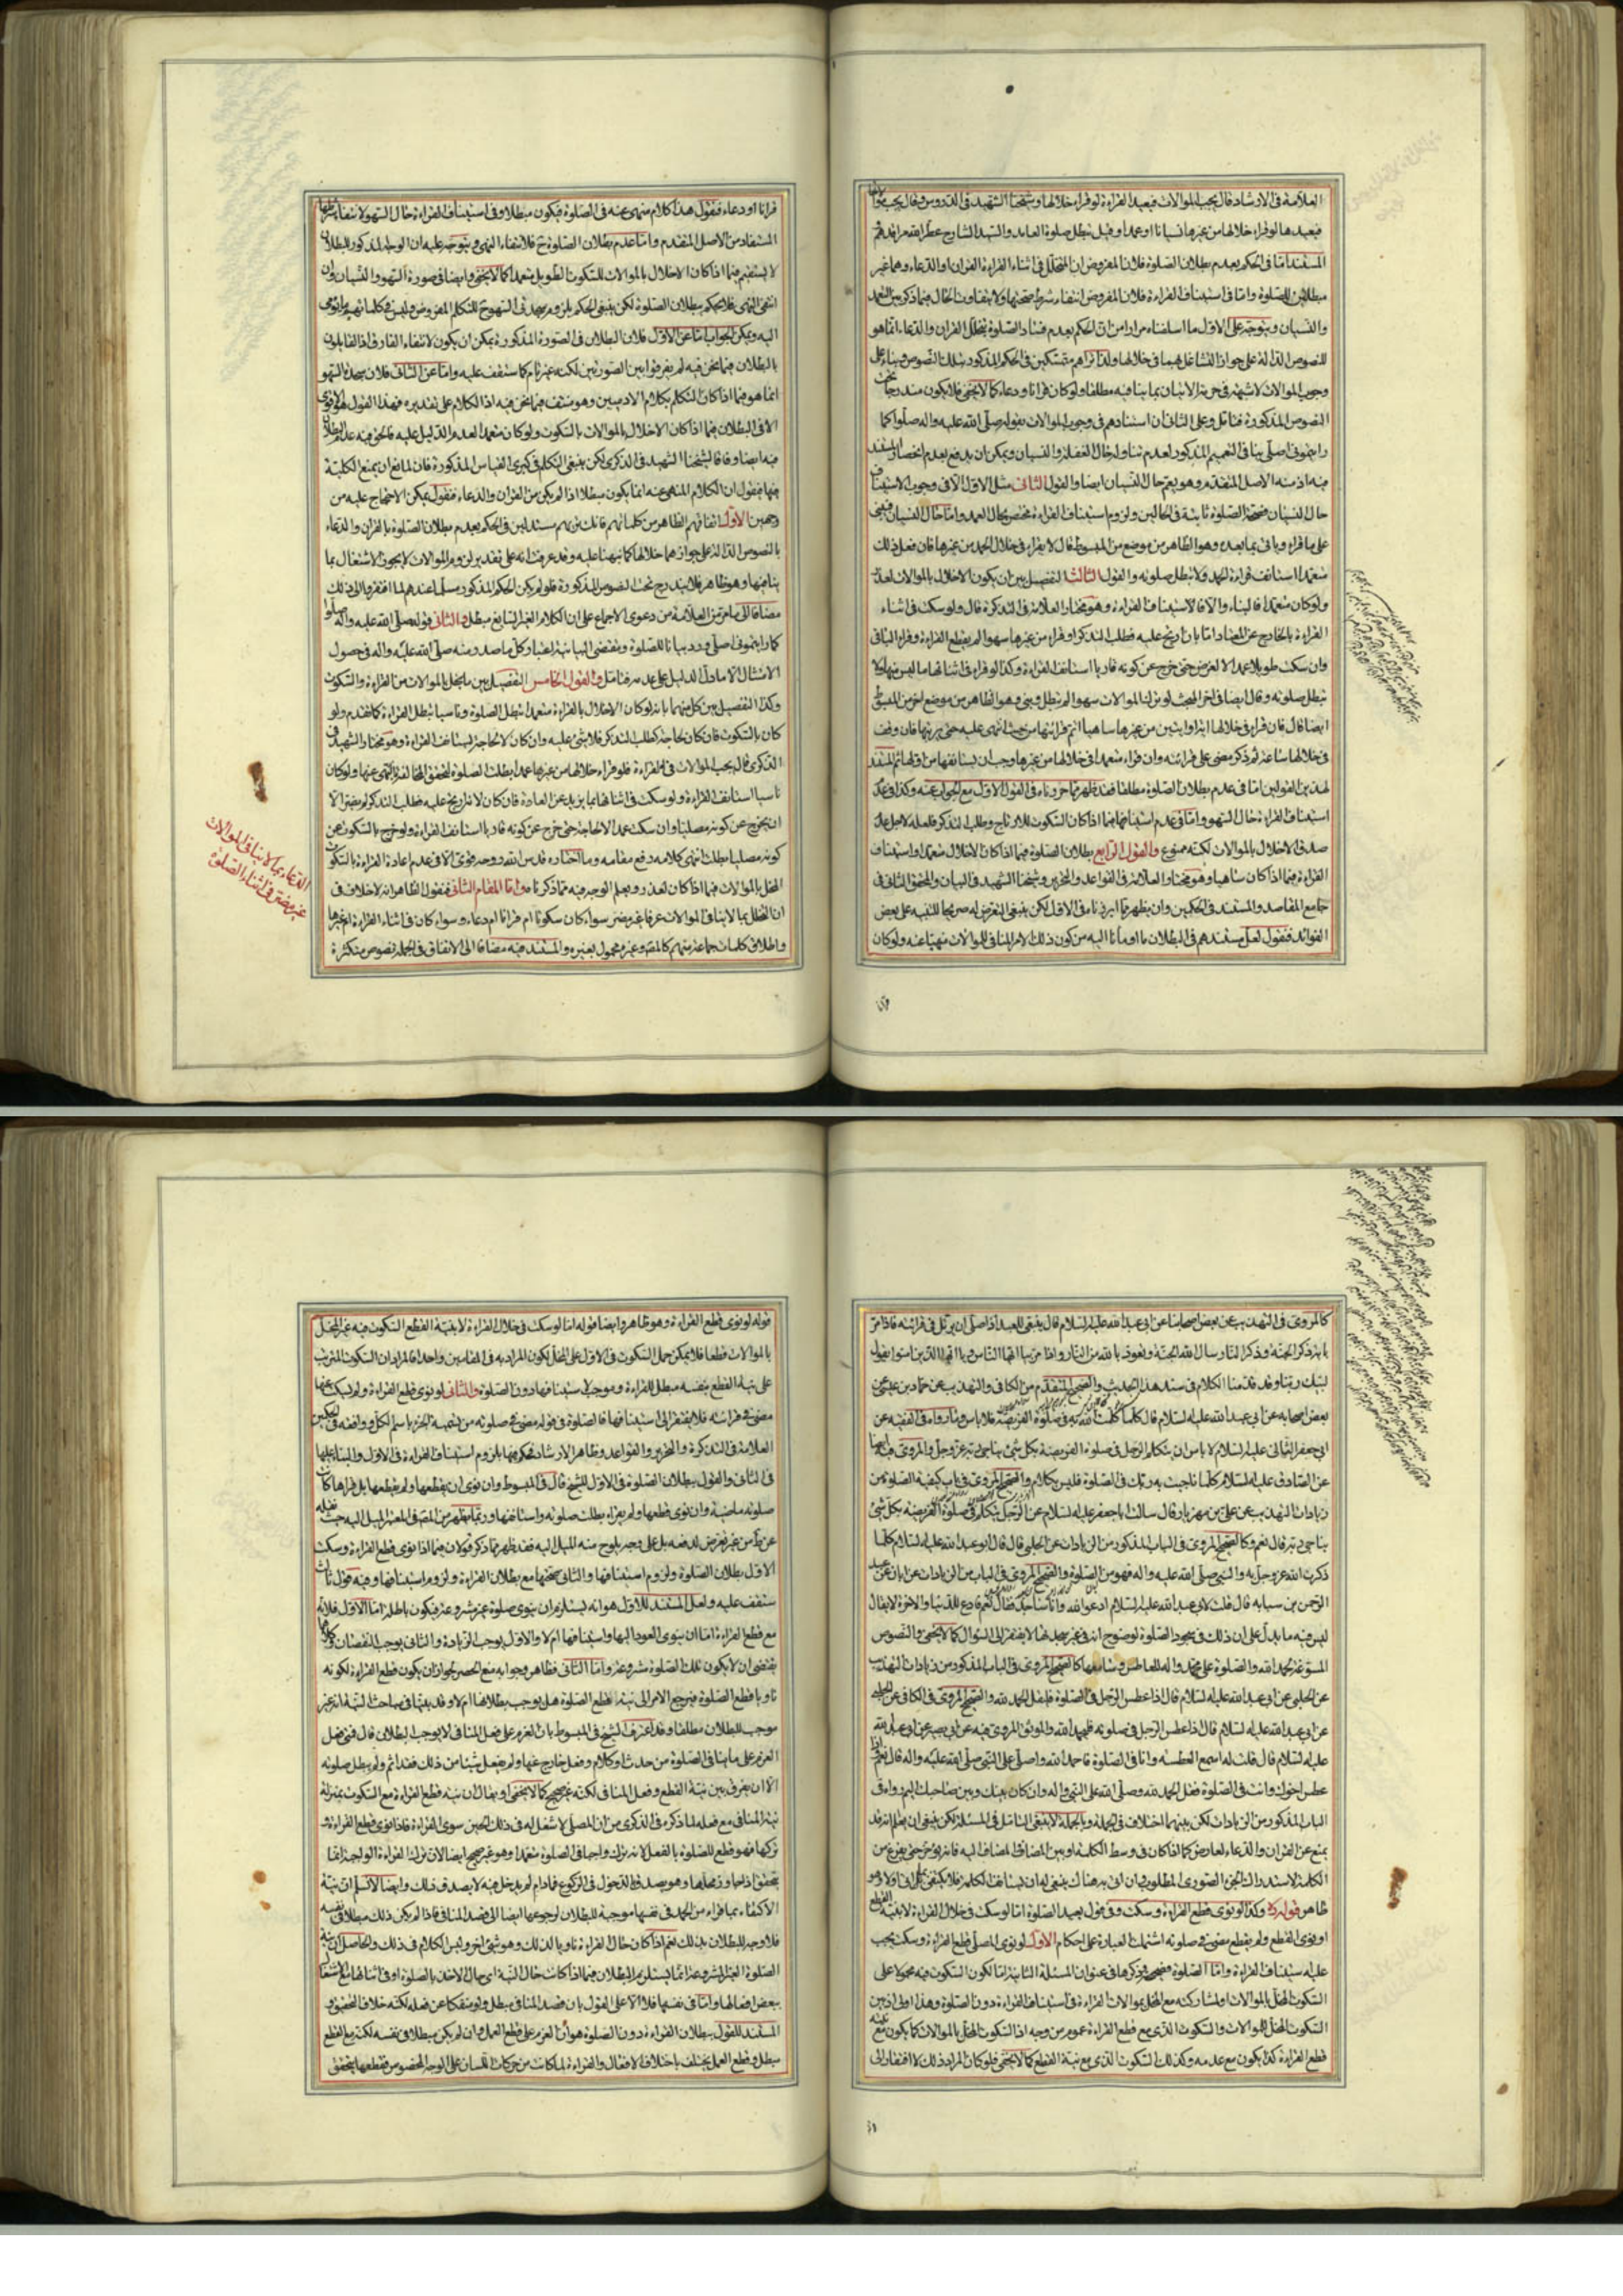 العلامة فى الارشاد قال يجب الموالات فيعيد القراءة لو قرا خلالها وشيخنا الشهيد فى الدروس وقال يجب
فيعيدها لو قراء خلالها من غيرها نسيانا او عمدا وقيل تبطل صلوة العامد والسيد الشارح عطر الله مرقدهم
المستند اما فى الحكم بعدم بطلان الصلوة فلان المفروض ان المتخلل فى اثناء القراءة القران او الدعاء وهما غير
مبطلين للصلوة واما فى استيناف القراءة فلان المفروض انتفاء شرط صحتها ولا يتفاوت الحال فيما ذكر بين العمد
والنسيان ويتوجه على الاول ما اسلفناه مرارا من ان الحكم بعدم فساد الصلوة بتخلل القران والدعاء انما هو
للنصوص الدالة على جواز التشاغل بهما فى خلالها ولذا تراهم متمسكين فى الحكم المذكور بتلك النصوص وبناء على
وجوب الموالات لا شبهة فى حرمة الاتيان بما ينافيه مطلقا ولو كان قرانا ودعاء كما لا يخفى فلا يكون مندرجا تحت
النصوص المذكورة فتامل وعلى الثانى ان استنادهم فى وجوب الموالات بقوله صلى الله عليه واله صلوا كما
رايتمونى اصلى ينافى التعميم المذكور لعدم تناوله لحال الغفلة والنسيان ويمكن ان يدفع بعدم انحصار المستند
فيه اذ منه الاصل المتقدم وهو يعم حال النسيان ايضا والقول الثانى مثل الاول الا فى وجوب الاستيناف
حال النسيان فصحة الصلوة ثابتة فى الحالين ولزوم استيناف القراءة مختص بحال العمد واما حال النسيان فيبنى
على ما قراء وياتى بما بعده وهو الظاهر من موضع من المبسوط قال لا يقراء فى خلال الحمد من غيرها فان فعل ذلك
متعمدا استانف قراءة الحمد ولا تبطل صلوته والقول الثالث التفصيل بين ان يكون الاخلال بالموالات لعذر
ولو كان متعمدا فالبناء والا فالاستيناف القراءة وهو مختار العلامة فى التذكرة قال ولو سكت فى اثناء
القراءة بالخارج عن المعتاد اما بان ارتج عليه فطلب التذكر او قراء من غيرها سهوا لم يقطع القراءة وقراء الباقى
وان سكت طويلا عمدا لا لغرض حتى خرج عن كونه قاريا استانف القراءة وكذا لو قراء فى اثنائها ما ليس منها ولا
تبطل صلوته وقال ايضا فى اخر المبحث لو ترك الموالات سهوا لم تبطل وبنى وهو الظاهر من موضع اخر من المبسوط
ايضا قال فان قراء فى خلالها اية او ايتين من غيرها ساهيا اتم قرائتها من حيث انتهى عليه حتى يرتبها فان وقف
فى خلالها ساعة ثم ذكر مضى على قرائته وان قراء متعمدا فى خلالها من غيرها وجب ان يستانفها من اولها ثم المستند
لهذين القولين اما فى عدم بطلان الصلوة مطلقا فقد ظهر مما حررناه فى القول الاول مع الجواب عنه وكذا فى عدم
استيناف القراءة حال السهو واما فى عدم استينافها فيما اذا كان السكوت للارتاج وطلب التذكر فلعله لاجل عدم
صدق الاخلال بالموالات لكنه ممنوع والقول الرابع بطلان الصلوة فيما اذا كان الاخلال متعمدا واستيناف
القراءة فيما اذا كان ساهيا وهو مختار العلامة فى القواعد والتحرير وشيخنا الشهيد فى البيان والمحقق الثانى فى
جامع المقاصد والمستند فى الحكمين وان يظهر مما ابرزناه فى الاول لكن ينبغى التعرض له صريحا للتنبيه على بعض
الفوائد فنقول لعل مستندهم فى البطلان ما اومأنا اليه من كون ذلك الامر المنافى للموالات منهيا عنه ولو كان
قرانا او دعاء فنقول هذا كلام منهى عنه فى الصلوة فيكون مبطلا وفى استيناف القراءة حال السهو لانتفاء شرطها
المستفاد من الاصل المتقدم واما عدم بطلان الصلوة ح فلانتفاء النهى ويتوجه عليه ان الوجه المذكور للبطلان
لا يستقيم فيما اذا كان الاخلال بالموالات للسكوت الطويل متعمدا كما لا يخفى وايضا فى صورة السهو والنسيان وان
انتفى النهى فلا يحكم ببطلان الصلوة لكن ينبغى الحكم بلزوم سجدتى السهو ح للتكلم المفروض وليس فى كلماتهم ما يومى
اليه ويمكن الجواب اما عن الاول فلان البطلان فى الصورة المذكورة يمكن ان يكون لانتفاء الفارق اذ القائلون
بالبطلان فيما نحن فيه لم يفرقوا بين الصورتين لكنه غير تام كما ستقف عليه واما عن الثانى فلان سجدة السهو
انما هو فيما اذا كان التكلم بكلام الادميين وهو منتف فيما نحن فيه اذ الكلام على تقديره فهذا القول هو الاقوى
الا فى البطلان فيما اذا كان الاخلال بالموالات بالسكوت ولو كان متعمدا لعدم الدليل عليه فالحق فيه عدم البطلان
فيه ايضا وفاقا لشيخنا الشهيد فى الذكرى لكن ينبغى التكلم فى كبرى القياس المذكورة فان لمانع ان يمنع الكلية
فيها فيقول ان الكلام المنهى عنه انما يكون مبطلا اذا لم يكن من القران والدعاء فنقول يمكن الاحتجاج عليه من
وجهين الاول اتفاقهم الظاهر من كلماتهم فانك تريهم مستدلين فى الحكم بعدم بطلان الصلوة بالقران والدعاء
بالنصوص الدالة على جوازهما خلالها كما نبهنا عليه وقد عرفت انه على تقدير لزوم الموالات لا يجوز الاشتغال بما
ينافيها وهو ظاهر فلا يندرج تحت النصوص المذكورة فلو لم يكن الحكم المذكور مسلما عندهم لما افتقروا الى ذلك
مضافا الى ما مر من العلامة من دعوى الاجماع على ان الكلام الغير السايغ مبطل والثانى قوله صلى الله عليه واله صلوا
كما رايتمونى اصلى ورد بيانا للصلوة ومقتضى البيانية اعتبار كل ما صدر منه صلى الله عليه واله فى حصول
الامتثال الا ما دل الدليل على عدمه فتامل والقول الخامس التفصيل بين ما يخل بالموالات من القراءة والسكوت
وكذا التفصيل بين كل منهما بانه لو كان الاخلال بالقراءة متعمدا تبطل الصلوة وناسيا تبطل القراءة كما تقدم ولو
كان بالسكوت فان كان لحاجة كطلب التذكر فلا شئ عليه وان كان لا لحاجة يستانف القراءة وهو مختار الشهيد فى
الذكرى قال يجب الموالات فى القراءة فلو قراء خلالها من غيرها عمدا ابطلت الصلوة لتحقق المخالفة المنهى عنها ولو كان
ناسيا استانف القراءة ولو سكت فى اثنائها بما يزيد عن العادة فان كان لانه ارتج عليه فطلب التذكر لم يضر الا
ان يخرج عن كونه مصليا وان سكت عمدا لا لحاجة حتى خرج عن كونه قاريا استانف القراءة ولو خرج بالسكوت عن
كونه مصليا بطلت انتهى كلامه رفع مقامه وما اختاره قدس الله روحه قوى الا فى عدم اعادة القراءة بالسكوت
المخل بالموالات فيما اذا كان لعذر ويعلم الوجه فيه مما ذكرنا واما المقام الثانى فنقول الظاهر انه لا خلاف فى
ان التخلل بما لا ينافى الموالات عرفا غير مضر سواء كان سكوتا ام قرانا ام دعاء وسواء كان فى اثناء القراءة ام غيرها
واطلاق كلمات جماعة منهم كالمص وغيره محمول بغيره والمستند فيه مضافا الى الاتفاق فى الجملة نصوص متكثرة
الدعاء بما لا ينافى الموالات
غير مضر فى اثناء الصلوة
كالمروى فى التهذيب عن بعض اصحابنا عن ابى عبد الله عليه السلام قال ينبغى للعبد اذا صلى ان يرتل فى قرائته فاذا مر
باية ذكر الجنة وذكر النار سال الله الجنة وتعوذ بالله من النار واذا مر بيا ايها الناس ويا ايها الذين امنوا يقول
لبيك ربنا وقد قدمنا الكلام فى سند هذا الحديث والصحيح المتقدم من الكافى والتهذيب عن حماد بن عيسى عن
بعض اصحابه عن ابى عبد الله عليه السلام قال كلما كلمت الله به فى صلوة الفريضة فلا باس وما رواه فى الفقيه عن
ابى جعفر الثانى عليه السلام لا باس ان يتكلم الرجل فى صلوة الفريضة بكل شئ يناجى به ربه عز وجل والمروى فيه ايضا
عن الصادق عليه السلام كلما ناجيت به ربك فى الصلوة فليس بكلام والصحيح المروى فى باب كيفية الصلوة من
زيادات التهذيب عن على بن مهزيار قال سالت ابا جعفر عليه السلام عن الرجل يتكلم فى صلوة الفريضة بكل شئ
يناجى ربه قال نعم وكالصحيح المروى فى الباب المذكور من الزيادات عن الحلبى قال قال ابو عبد الله عليه السلام كلما
ذكرت الله عز وجل به والنبى صلى الله عليه واله فهو من الصلوة والصحيح المروى فى الباب من الزيادات عن ابان عن عبد
الرحمن بن سيابه قال قلت لابى عبد الله عليه السلام ادعو الله وانا ساجد فقال نعم فادع للدنيا والاخرة لا يقال
ليس فيه ما يدل على ان ذلك فى سجود الصلوة لوضوح انه فى غير سجدتها لا يفتقر الى السؤال كما لا يخفى والنصوص
المسوغة لحمد الله والصلوة على محمد واله للعاطس وسامعها كالصحيح المروى فى الباب المذكور من زيادات التهذيب
عن الحلبى عن ابى عبد الله عليه السلام قال اذا عطس الرجل فى الصلوة فليقل الحمد لله والصحيح المروى فى الكافى عن الحلبى
عن ابى عبد الله عليه السلام قال اذا عطس الرجل فى صلوته فليحمد الله والموثق المروى فيه عن ابى بصير عن ابى عبد الله
عليه السلام قال قلت له اسمع العطسة وانا فى الصلوة فاحمد الله واصلى على النبى صلى الله عليه واله قال نعم اذا
عطس اخوك وانت فى الصلوة فقل الحمد لله وصلى الله على النبى واله وان كان بينك وبين صاحبك اليم رواه فى
الباب المذكور من الزيادات لكن بينهما اختلاف فى الجملة وبالجملة لا ينبغى التامل فى المسئلة لكن ينبغى ان يعلم انه قد
يمنع عن القران والدعاء لعارض كما اذا كان فى وسط الكلمة او بين المضاف والمضاف اليه فانه يؤخر حتى يفرغ من
الكلمة لاستدراك الجزء الصورى المطلوب وان اتى به هناك ينبغى له ان يستانف الكلمة فلا يكتفى بما اتى اولا وهو
ظاهر قوله ره وكذا لو نوى قطع القراءة وسكت وفى قول يعيد الصلوة اما لو سكت فى خلال القراءة لا بنية القطع
او نوى القطع ولم يقطع مضى فى صلوته اشتملت العبارة على احكام الاول لو نوى المصلى قطع القراءة وسكت يجب
عليه استيناف القراءة واما الصلوة فصحيحة وذكرها فى عنوان المسئلة الثانية اما لكون السكوت فيه محمولا على
السكوت المخل بالموالات او لمشاركته مع المخل بموالات القراءة فى استيناف القراءة دون الصلوة وهذا اولى اذ بين
السكوت المخل للموالات والسكوت الذى مع قطع القراءة عموم من وجه اذ السكوت المخل بالموالات كما يكون مع نية
قطع القراءة كذا يكون مع عدمه وكذلك السكوت الذى مع نية القطع كما لا يخفى فلو كان المراد ذلك لا افتقار الى
قوله لو نوى قطع القراءة وهو ظاهر وايضا قوله اما لو سكت فى خلال القراءة لا بنية القطع السكوت فيه غير المخل
بالموالات قطعا فلا يمكن حمل السكوت فى الاول على المخل ليكون المراد به فى المقامين واحدا فالمراد ان السكوت المترتب
على نية القطع بنفسه مبطل للقراءة وموجب لاستينافها دون الصلوة والثانى لو نوى قطع القراءة ولم يسكت عنها
مضى فى قرائته فلا يفتقر الى استينافها فالصلوة فى قوله مضى فى صلوته من تسمية الجزء باسم الكل ووافقه فى الحكمين
العلامة فى التذكرة والتحرير والقواعد وظاهر الارشاد فحكم فيها بلزوم استيناف القراءة فى الاول والبناء عليها
فى الثانى والقول ببطلان الصلوة فى الاول للشيخ قال فى المبسوط وان نوى ان يقطعها ولم يقطعها بل قراها كانت
صلوته ماضية وان نوى قطعها ولم يقراء بطلت صلوته واستانفها وربما يظهر من المص فى المعتبر الميل اليه حيث نقله
عن غير تعرض لدفعه بل على وجه يلوح منه الميل اليه فقد ظهر مما ذكر قولان فيما اذا نوى قطع القراءة وسكت
الاول بطلان الصلوة ولزوم استينافها والثانى صحتها مع بطلان القراءة ولزوم استينافها وفيه قول ثالث
ستقف عليه ولعل المستند للاول هو انه يستلزم ان ينوى صلوة غير مشروعة فيكون باطلة اما الاول فلانه
مع قطع القراءة اما ان ينوى العود اليها واستينافها ام لا والاول يوجب الزيادة والثانى يوجب النقصان وكلاهما
يقتضى ان لا يكون تلك الصلوة مشروعة واما الثانى فظاهر وجوابه منع الحصر لجواز ان يكون قطع القراءة لكونه
ناويا قطع الصلوة فيرجع الامر الى نية قطع الصلوة هل يوجب بطلانها ام لا وقد بينا فى مباحث النية انه غير
موجب للبطلان مطلقا وقد اعترف الشيخ فى المبسوط بان العزم على فعل المنافى لا يوجب البطلان قال فى فصل
العزم على ما ينافى الصلوة من حدث او كلام وفعل خارج عنها ولم يفعل شيئا من ذلك فقد اثم ولم يبطل صلوته
الا ان يفرق بين نية القطع وفعل المنافى لكنه غير صحيح كما لا يخفى او يقال ان نية قطع القراءة مع السكوت بمنزلة
نية المنافى مع فعله لما ذكره فى الذكرى من ان المصلى لا شغل له فى ذلك الحين سوى القراءة فاذا نوى قطع القراءة و
تركها فهو قطع للصلوة بالفعل لانه ترك واجبا فى الصلوة متعمدا وهو غير صحيح ايضا لان ترك القراءة الواجبة انما
يتحقق اذا جاوز محلها وهو يصدق بالدخول فى الركوع فما دام لم يدخل فيه لا يصدق ذلك وايضا لا نسلم ان نية
الاكتفاء بما قراء من الحمد فى نفسها موجبة للبطلان لرجوعها ايضا الى قصد المنافى فاذا لم يكن ذلك مبطلا فى نفسه
فلا وجه للبطلان بذلك نعم اذا كان حال القراءة ناويا لذلك وهو شئ اخر وليس الكلام فى ذلك والحاصل ان نية
الصلوة الغير المشروعة انما يستلزم البطلان فيما اذا كانت حال النية اى حال الاخذ بالصلوة او فى اثنائها مع اشتغال
ببعض افعالها واما فى نفسها فلا الا على القول بان قصد المنافى مبطل ولو منفكا عن فعله لكنه خلاف التحقيق و
المستند للقول ببطلان القراءة دون الصلوة هو ان العزم على قطع العمل وان لم يكن مبطلا فى نفسه لكنه مع القطع
مبطل وقطع العمل يختلف باختلاف الافعال والقراءة لما كانت من حركات اللسان على الوجه المخصوص فقطعها يتحقق